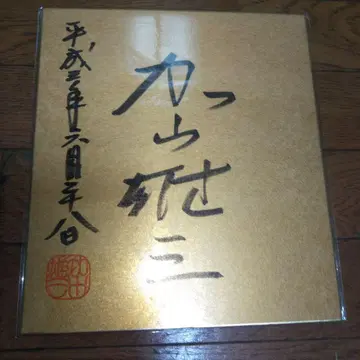 加山雄三
平成三〇年六月二十八日